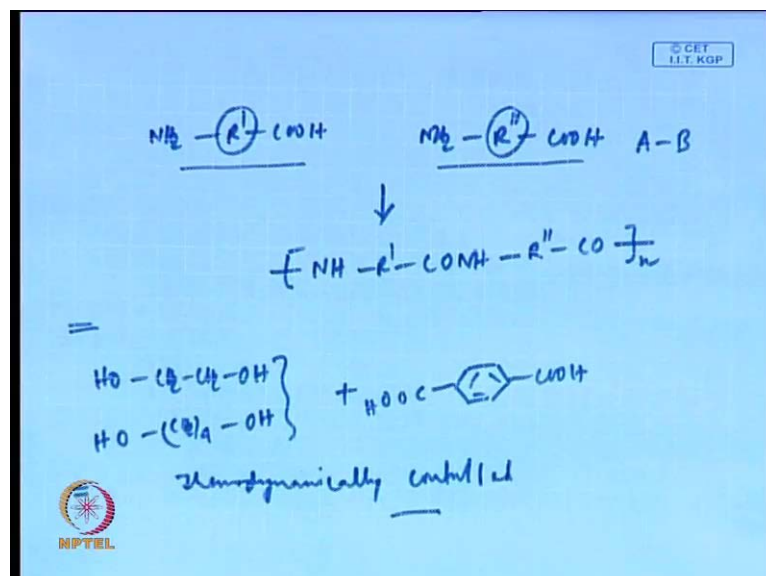 © CET
I.I.T. KGP
NH2 -R'- COOH NH2 -R"- COOH A-B
↓
-[ NH -R'- CONH -R"- CO ]-n
=
HO - CH2 - CH2 - OH } + HOOC- -COOH
HO - (CH2)4 - OH
Thermodynamically controlled
NPTEL